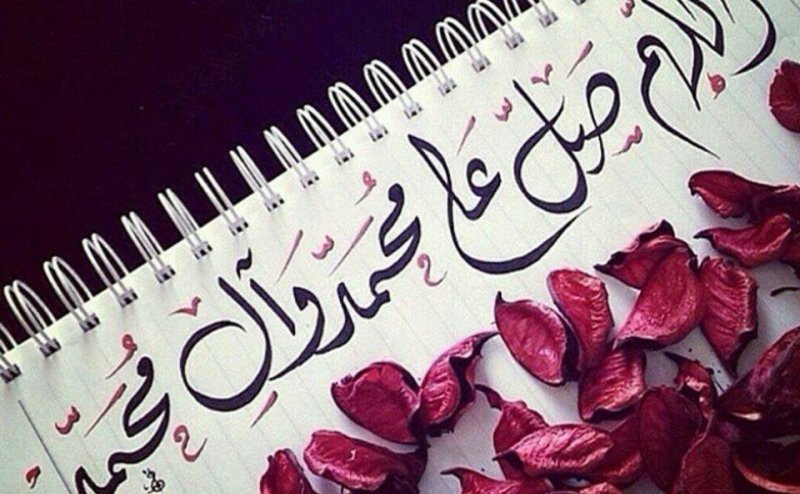 اللهم صلِّ على محمد وآل محمد